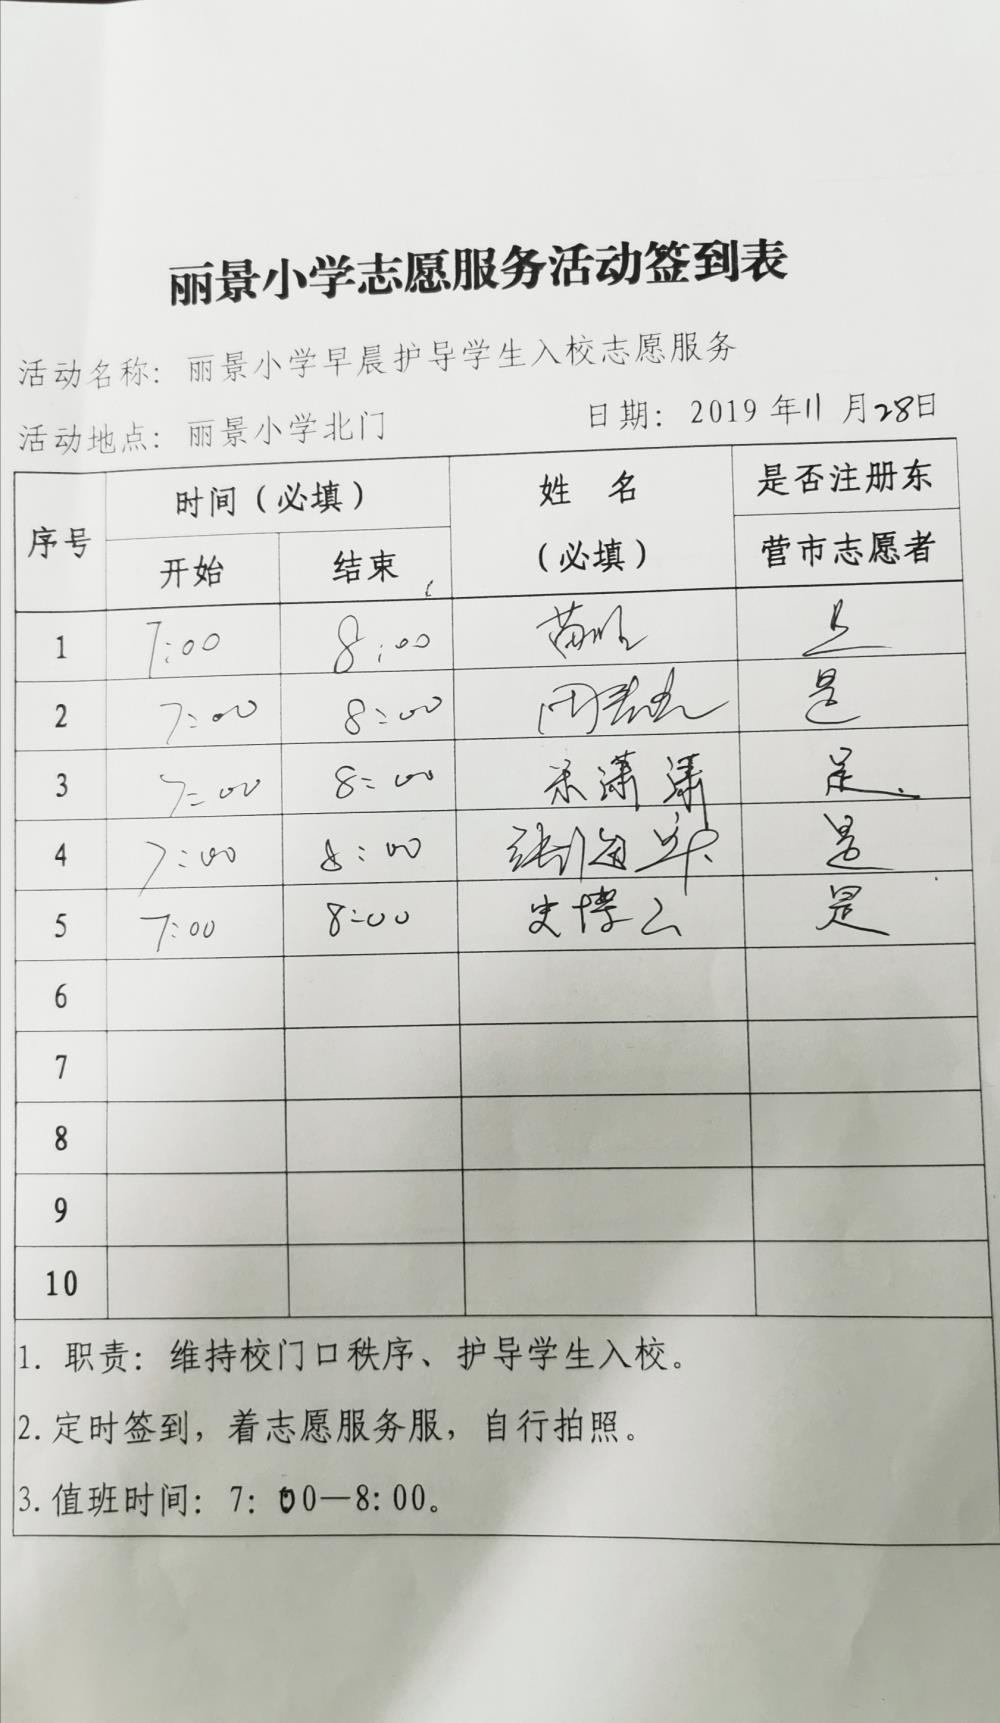 丽景小学志愿服务活动签到表
活动名称：丽景小学早晨护导学生入校志愿服务
活动地点：丽景小学北门 日期：2019年11月28日
序号 时间（必填） 姓名（必填） 是否注册东营市志愿者
开始 结束
1 7:00 8:00
2 7:00 8:00 是
3 7:00 8:00 潇潇 是
4 7:00 8:00 张海 是
5 7:00 8:00 史博云 是
6
7
8
9
10
1. 职责：维持校门口秩序、护导学生入校。
2. 定时签到，着志愿服务服，自行拍照。
3. 值班时间：7：00—8：00。